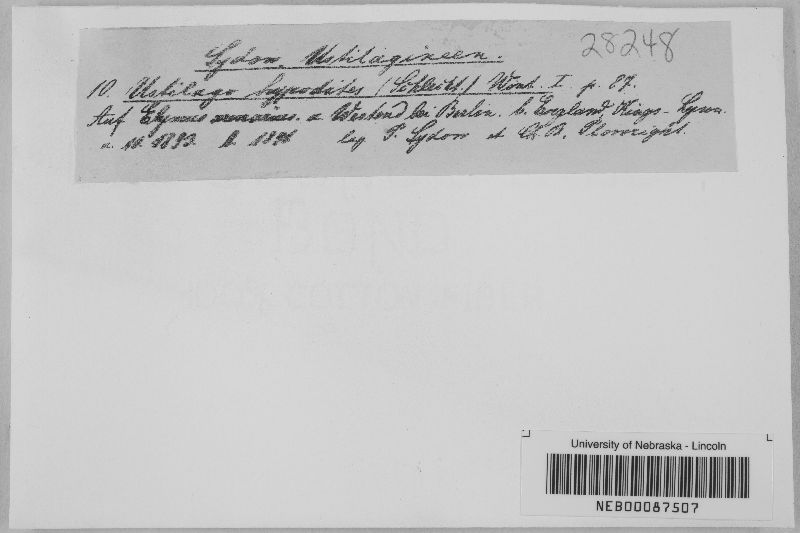 Sydow, Ustilagineen.
28248
10. Ustilago hypodytes (Schlecht.) Wint. I. p. 87.
Auf Elymus arenarius. a. Westend bei Berlin. b. England, Kings-Lynn.
a. 10. 1893. b. 1894 leg. P. Sydow et Ch. B. Plowright.
BOND
COTTON FIBER
University of Nebraska - Lincoln
NEB00087507